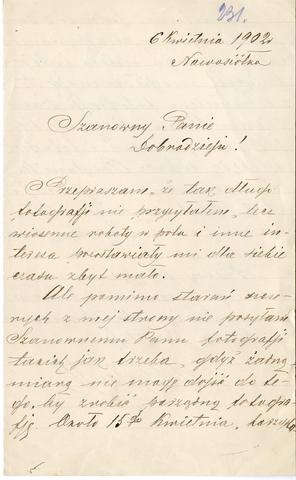 231.
6 Kwietnia 1902
Nawosiółka
Szanowny Panie
Dobrodzieju!
Przepraszam, że tak długo
fotografji nie przysyłałem, lecz
wiosenne roboty w polu i inne in-
teresa pozostawiały mi dla siebie
czasu zbyt mało.
Ale pomimo starań szcze-
rych z mej strony nie posyłam
Szanownemu Panu fotografji
takich jak trzeba, gdyż żadną
miarą nie mogę dojść do te-
go, by zrobić porządną fotogra-
fję. Około 15go Kwietnia,